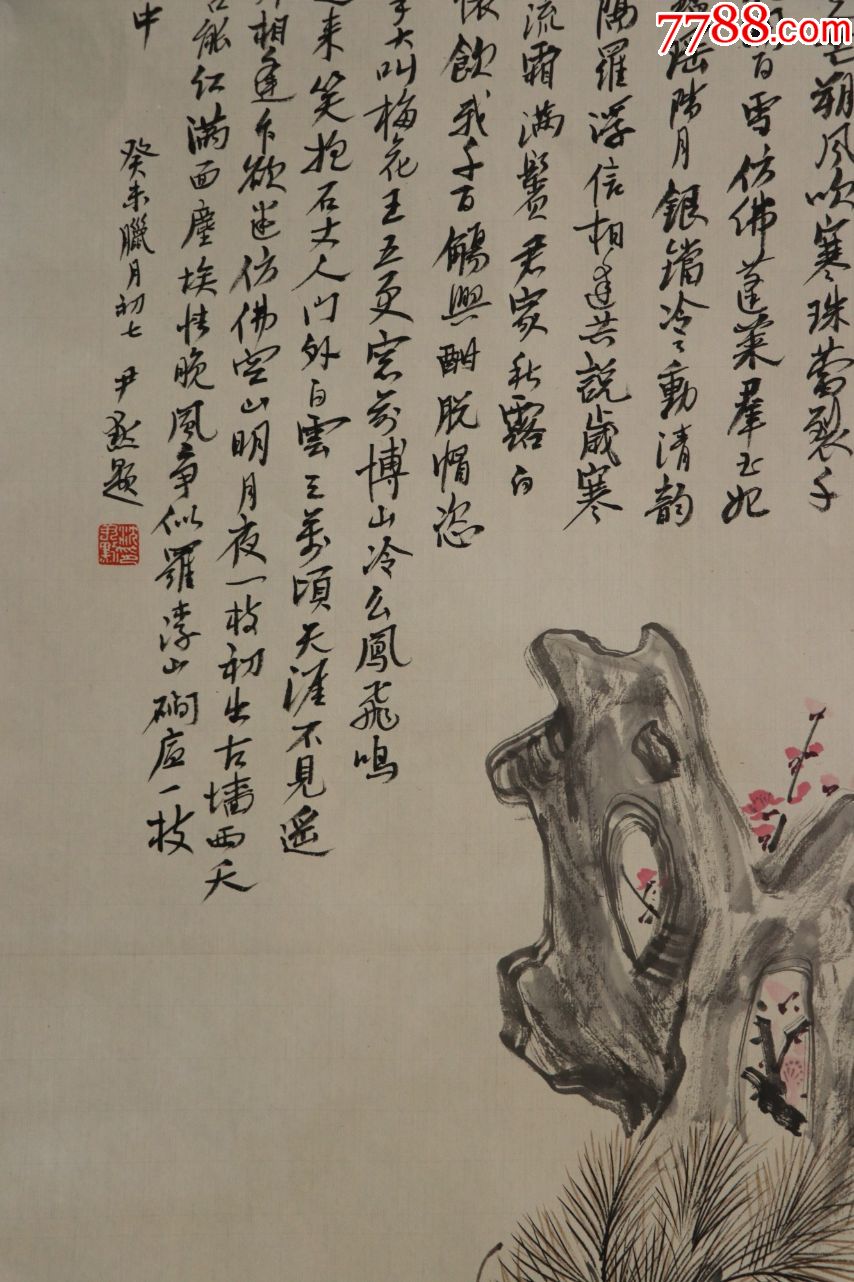 7788.com
朔风吹寒珠蕾裂千
白雪仿佛蓬莱群玉妃
瑶阶月银铛冷々动清韵
隔罗浮信相逢共说岁寒
流霜满鬓君家秋露白
饮我千百觞兴酣脱帽恣
大叫梅花王五更窓前博山冷么凤飞鸣
来笑抱石丈人门外白云三万顷天涯不见遥
相逢乍欲迷仿佛空山明月夜一枝初出古墙西天
能红满面尘埃情晚风争似罗浮山磵底一枝
中
癸未腊月初七 尹默题
沈尹默印